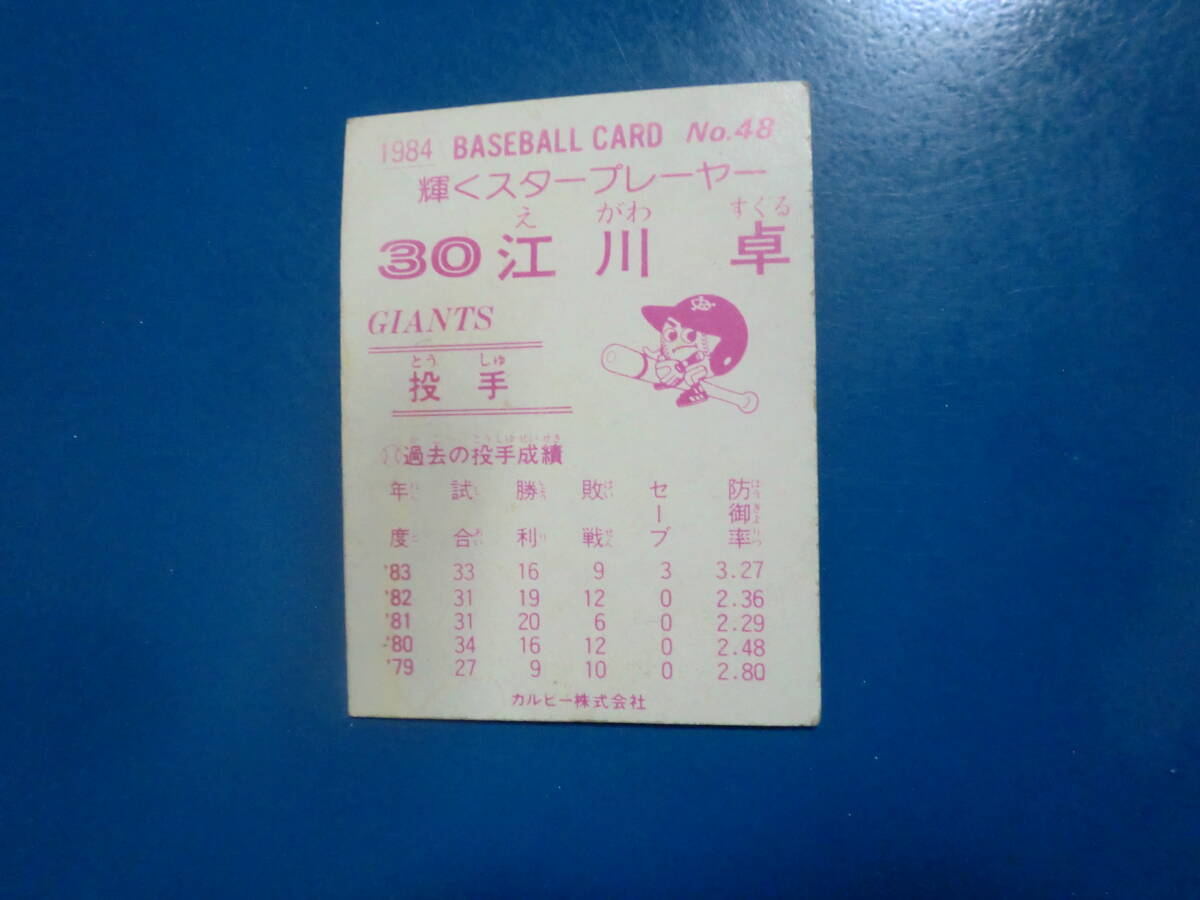 1984 BASEBALL CARD No.48
輝くスタープレーヤー
え がわ すぐる
30 江川 卓
GIANTS
とう しゅ
投手
かこ とうしゅせいせき
過去の投手成績
年度 試合 勝利 敗戦 セーブ 防御率
'83 33 16 9 3 3.27
'82 31 19 12 0 2.36
'81 31 20 6 0 2.29
'80 34 16 12 0 2.48
'79 27 9 10 0 2.80
カルビー株式会社